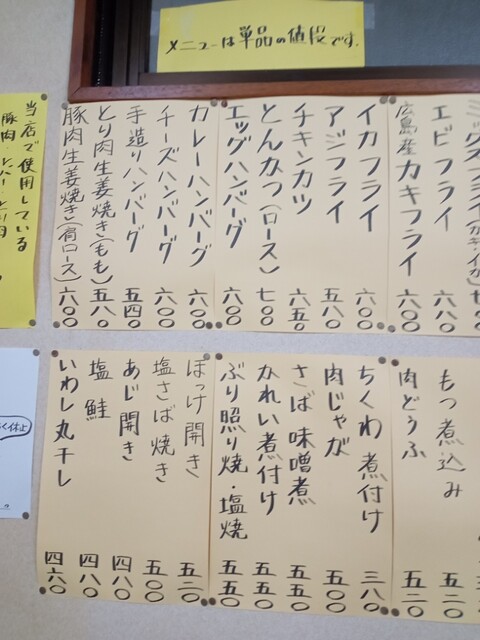 メニューは単品の値段です。
ミックスフライ(カキイカ)
エビフライ 六八〇
広島産カキフライ 六〇〇
イカフライ 六〇〇
アジフライ 五八〇
チキンカツ 六五〇
とんかつ(ロース) 七〇〇
エッグハンバーグ 六〇〇
カレーハンバーグ 六〇〇
チーズハンバーグ 六〇〇
手造りハンバーグ 五四〇
とり肉生姜焼き(もも) 五八〇
豚肉生姜焼き(肩ロース) 六〇〇
当店で使用している
豚肉、レバー、とり肉
もつ煮込み 五二〇
肉どうふ 五二〇
ちくわ煮付け 三八〇
肉じゃが 五〇〇
さば味噌煮 五五〇
かれい煮付け 五五〇
ぶり照り焼・塩焼 五五〇
ほっけ開き 五二〇
塩さば焼き 五〇〇
あじ開き 四八〇
塩鮭 四八〇
いわし丸干し 四六〇
休止